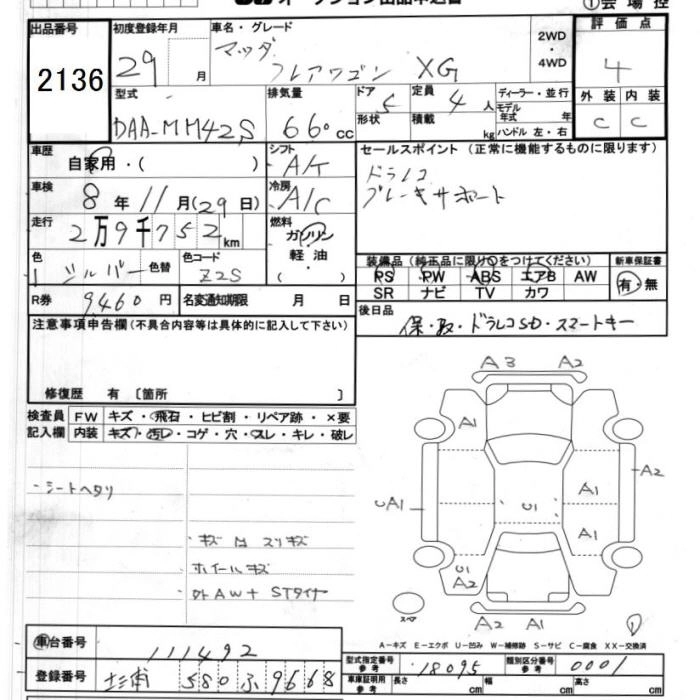 オークション出品申込書
①会場控
出品番号
2136
初度登録年月
29 月
車名・グレード
マツダ
フレアワゴン XG
2WD
・
4WD
評価点
4
型式
DAA-MM42S
排気量
660 cc
ドア
5
形状
定員
4 人
積載
kg
ディーラー・並行
モデル
年式 年
ハンドル 左・右
外装 内装
C C
車歴
自家用・( )
シフト
A/T
セールスポイント (正常に機能するものに限ります)
ドラレコ
ブレーキサポート
車検
8 年 11 月 (29 日)
冷房
A/C
走行
2万9千752 km
燃料
ガソリン
軽油
( ・ )
色
シルバー 色替
色コード
Z2S
装備品 (純正品に限り○をつけてください)
PS PW ABS エアB AW
SR ナビ TV カワ
新車保証書
有・無
R券 9460 円
名変通知期限 月 日
後日品
保・取・ドラレコSD・スマートキー
注意事項申告欄(不具合内容等は具体的に記入して下さい)
修復歴 有 〔箇所 〕
検査員
記入欄
FW キズ・飛石・ヒビ割・リペア跡・×要
内装 キズ・汚レ・コゲ・穴・スレ・キレ・破レ
・シートヘタリ
キズ 凹 スリキズ
ホイールキズ
外AW+STタイヤ
A3 A2
A1
A2
UA1
A1
U1
A1
U1
A2
スペア
A2 A1
A-キズ E-エクボ U-凹み W-補修跡 S-サビ C-腐食 XX-交換済
車台番号 111492
登録番号 580 ふ 9668
型式指定番号
参考
18095
類別区分番号
参考
0001
車庫証明用
参考
長さ cm
幅 cm
高さ cm